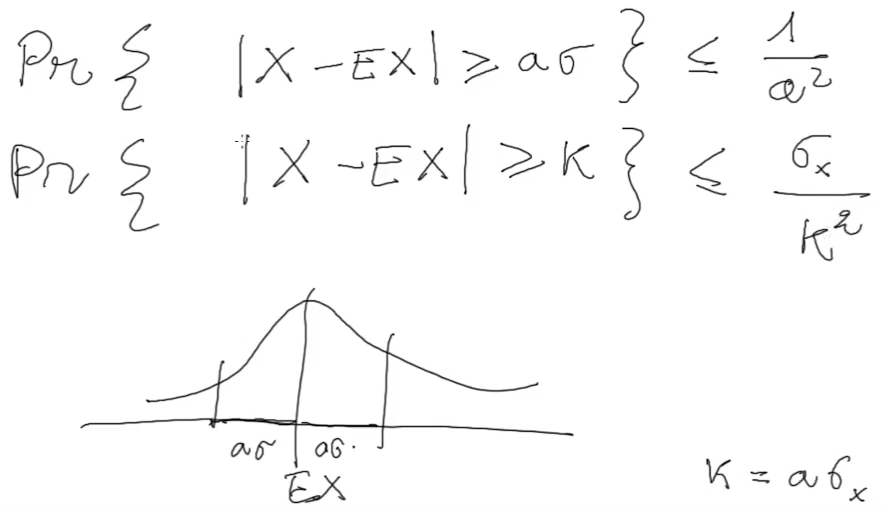 Pr { |X - EX| ≥ aσ } ≤ 1/a²
Pr { |X - EX| ≥ K } ≤ σₓ/K²
aσ aσ.
EX
K = aσₓ